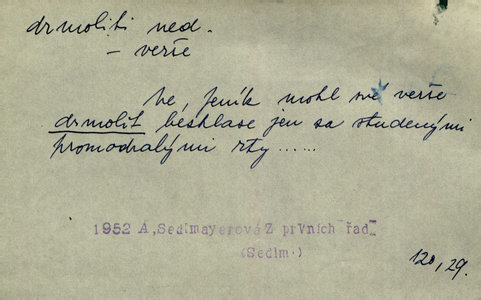 drmoliti ned.
– verše
Ne, Jeník mohl své verše
drmolit bezhlase jen za studenými
promodralými rty......
1952 A, Sedlmayerová Z prvních řad
(Sedlm.)
120, 29.